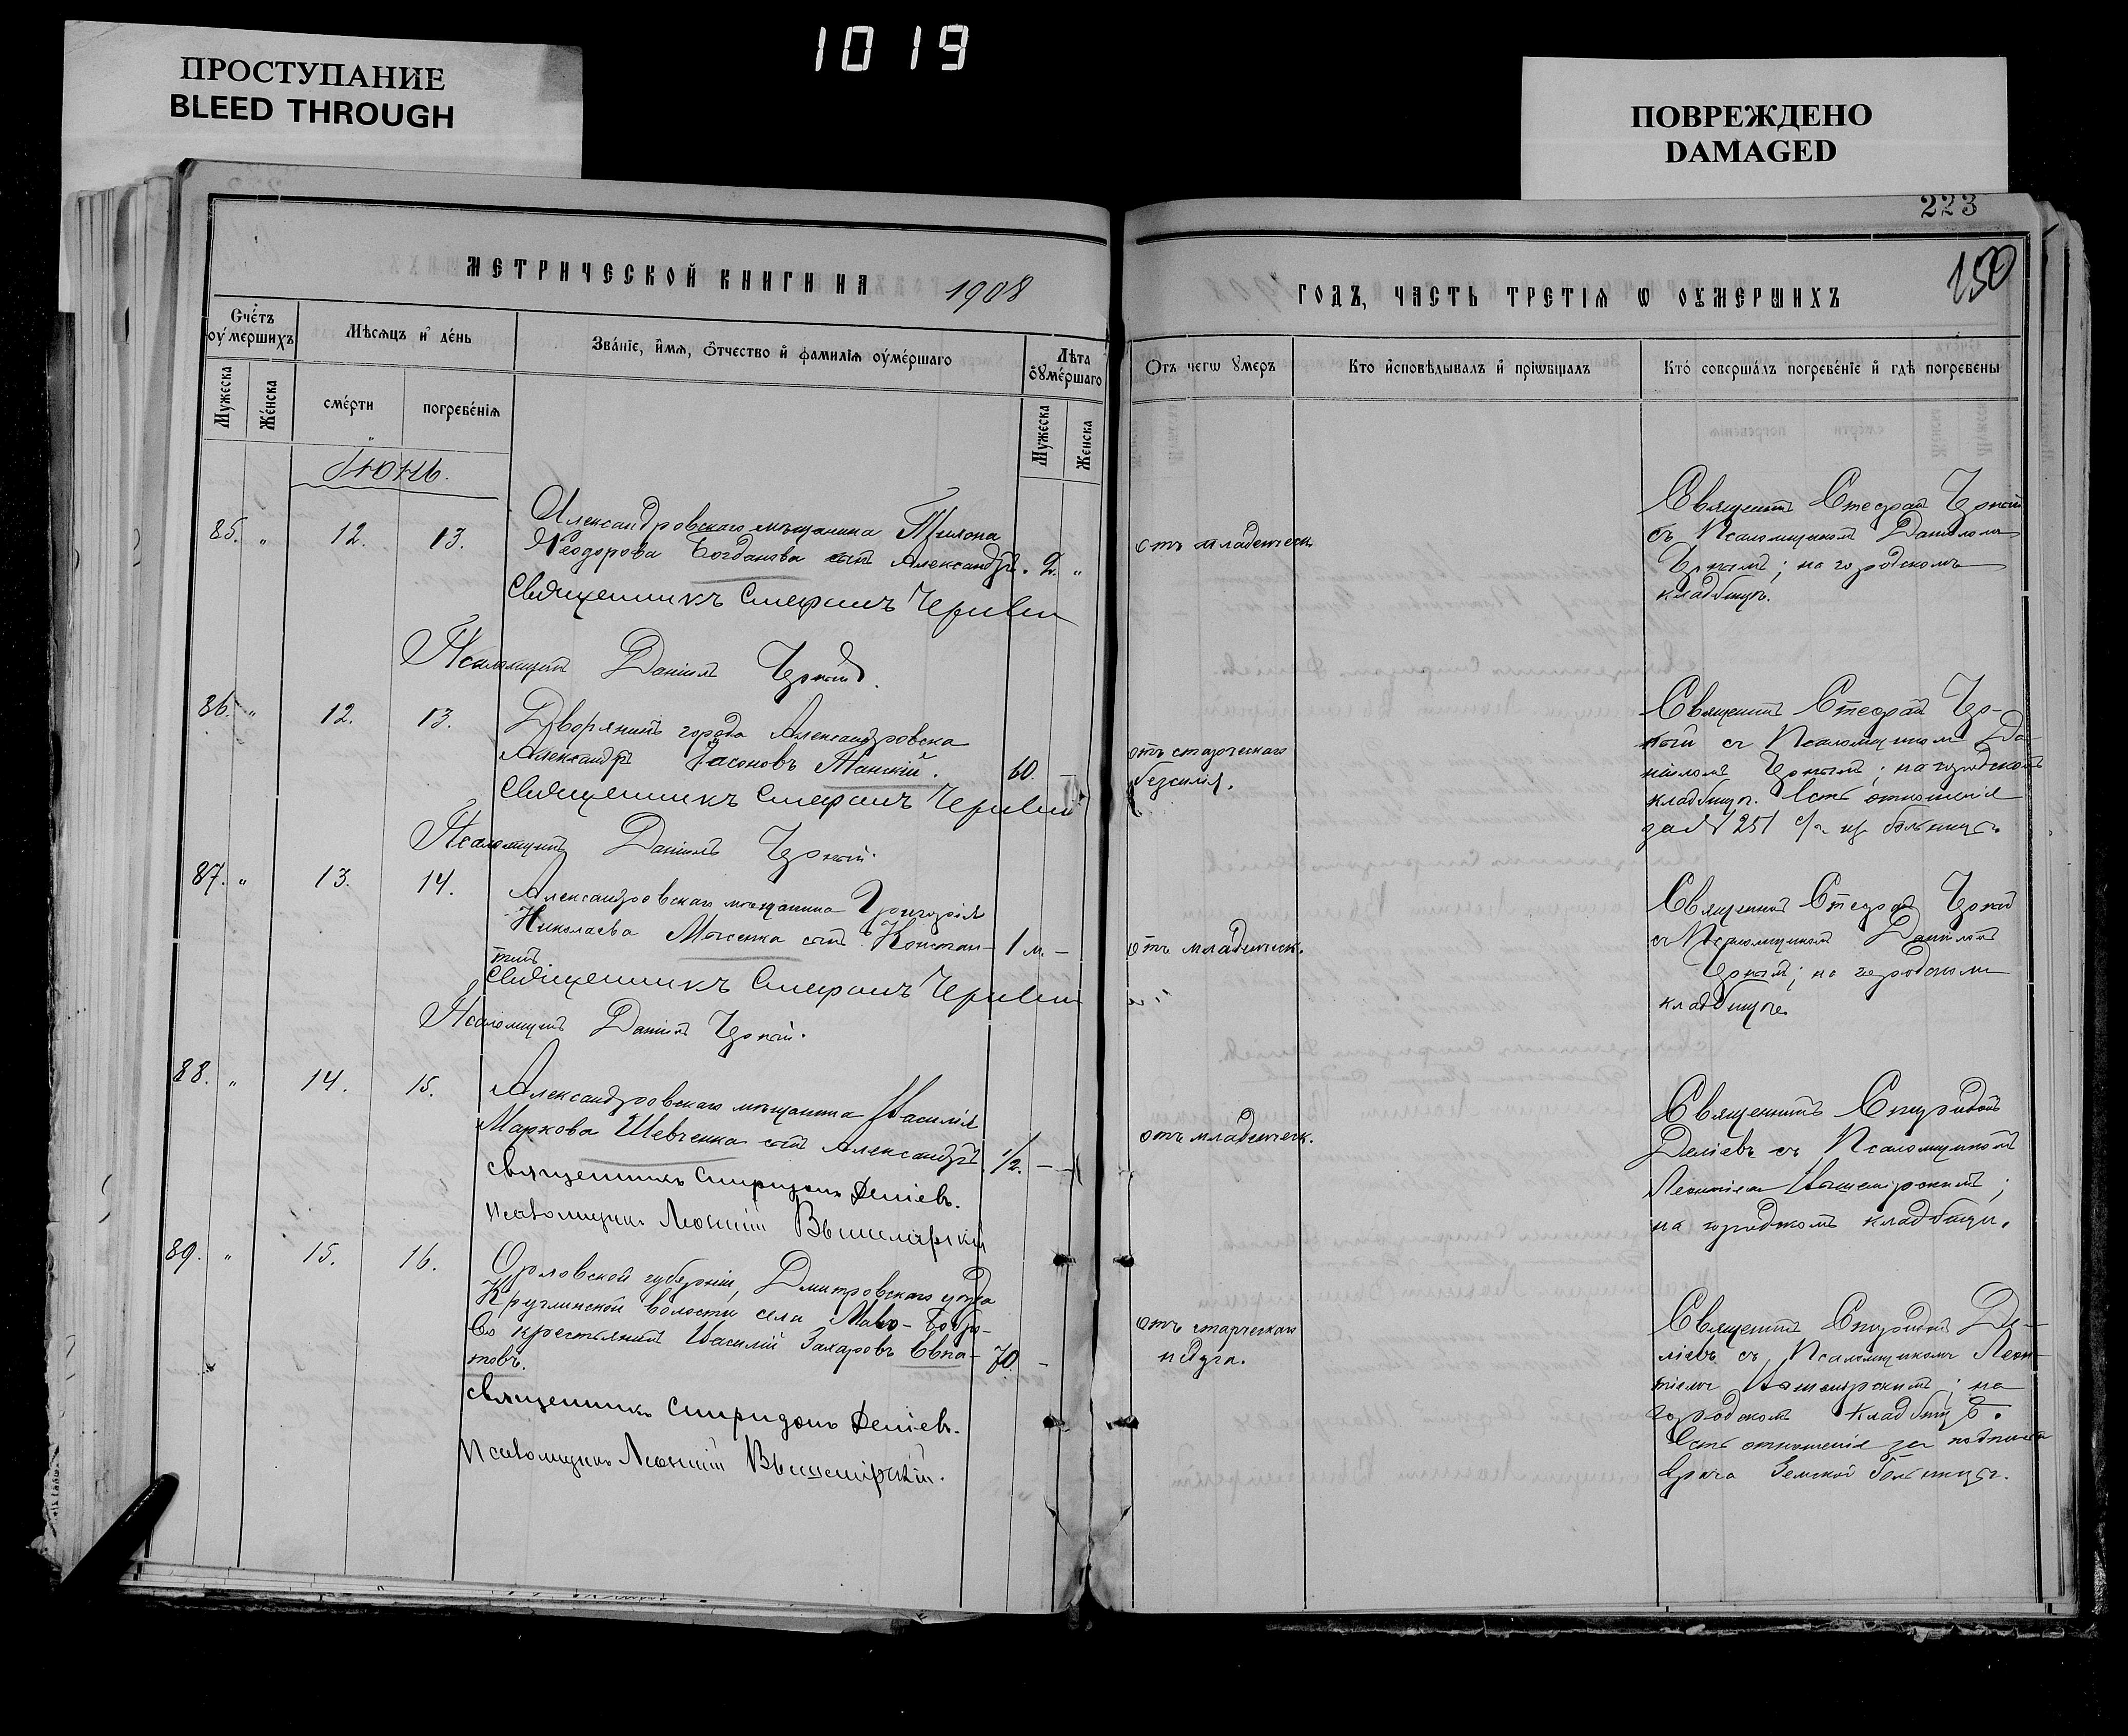 1019
ПРОСТУПАНИЕ
BLEED THROUGH
ПОВРЕЖДЕНО
DAMAGED
223
150
МЕТРИЧЕСКОЙ КНИГИ НА 1908
ГОДЪ, ЧАСТЬ ТРЕТІѦ Ѡ ОУМЕРШИХЪ
Счетъ оумершихъ
Мѣсѧцъ и день
Званіе, имѧ, отчество и фамиліѧ оумершаго
Лѣта оумершаго
Мужеска
Женска
смерти
погребеніѧ
Мужеска
Женска
Отъ чегѡ умеръ
Кто исповѣдывалъ и пріѡбщалъ
Кто совершалъ погребеніе и гдѣ погребены
Іюнь.
85. " 12. 13.
Александровскаго мѣщанина
Ѳеодорова Богданова сынъ Александръ. 2. "
Священникъ Стефанъ
Псаломщикъ Даніилъ
отъ младенческ.
Священникъ Стефанъ
съ Псаломщикомъ Даніиломъ
; на городскомъ
кладбищѣ.
86. " 12. 13.
Дворянинъ города Александровска
Александръ 60. –
Священникъ Стефанъ
Псаломщикъ Даніилъ
отъ старческаго
безсилія.
Священникъ Стефанъ
съ Псаломщикомъ Да-
ніиломъ ; на городскомъ
кладбищѣ. Есть отношеніе
за № 251 больницы.
87. " 13. 14.
Александровскаго мѣщанина Григорія
Николаева сынъ Констан- 1 м. –
тинъ
Священникъ Стефанъ
Псаломщикъ Даніилъ
отъ младенческ.
Священникъ Стефанъ
съ Псаломщикомъ Даніиломъ
; на городскомъ
кладбищѣ.
88. " 14. 15.
Александровскаго мѣщанина Василія
Маркова Шевченка сынъ Александръ. 1/2. –
Священникъ Спиридонъ Деліевъ.
Псаломщикъ Леонтій Вышемірскій
отъ младенческ.
Священникъ Спиридонъ
Деліевъ съ Псаломщикомъ
Леонтіемъ Вышемірскимъ;
на городскомъ кладбищѣ.
89. " 15. 16.
Орловской губерніи, Дмитровскаго уѣзда
Круглинской волости села Мало-Бобро-
во крестьянинъ Василій Захаровъ Евпа- 70. –
товъ.
Священникъ Спиридонъ Деліевъ.
Псаломщикъ Леонтій Вышемірскій.
отъ старческаго
недуга.
Священникъ Спиридонъ Де-
ліевъ съ Псаломщикомъ Леон-
тіемъ Вышемірскимъ; на
городскомъ кладбищѣ.
Есть отношеніе за подписью
врача Земской больницы.